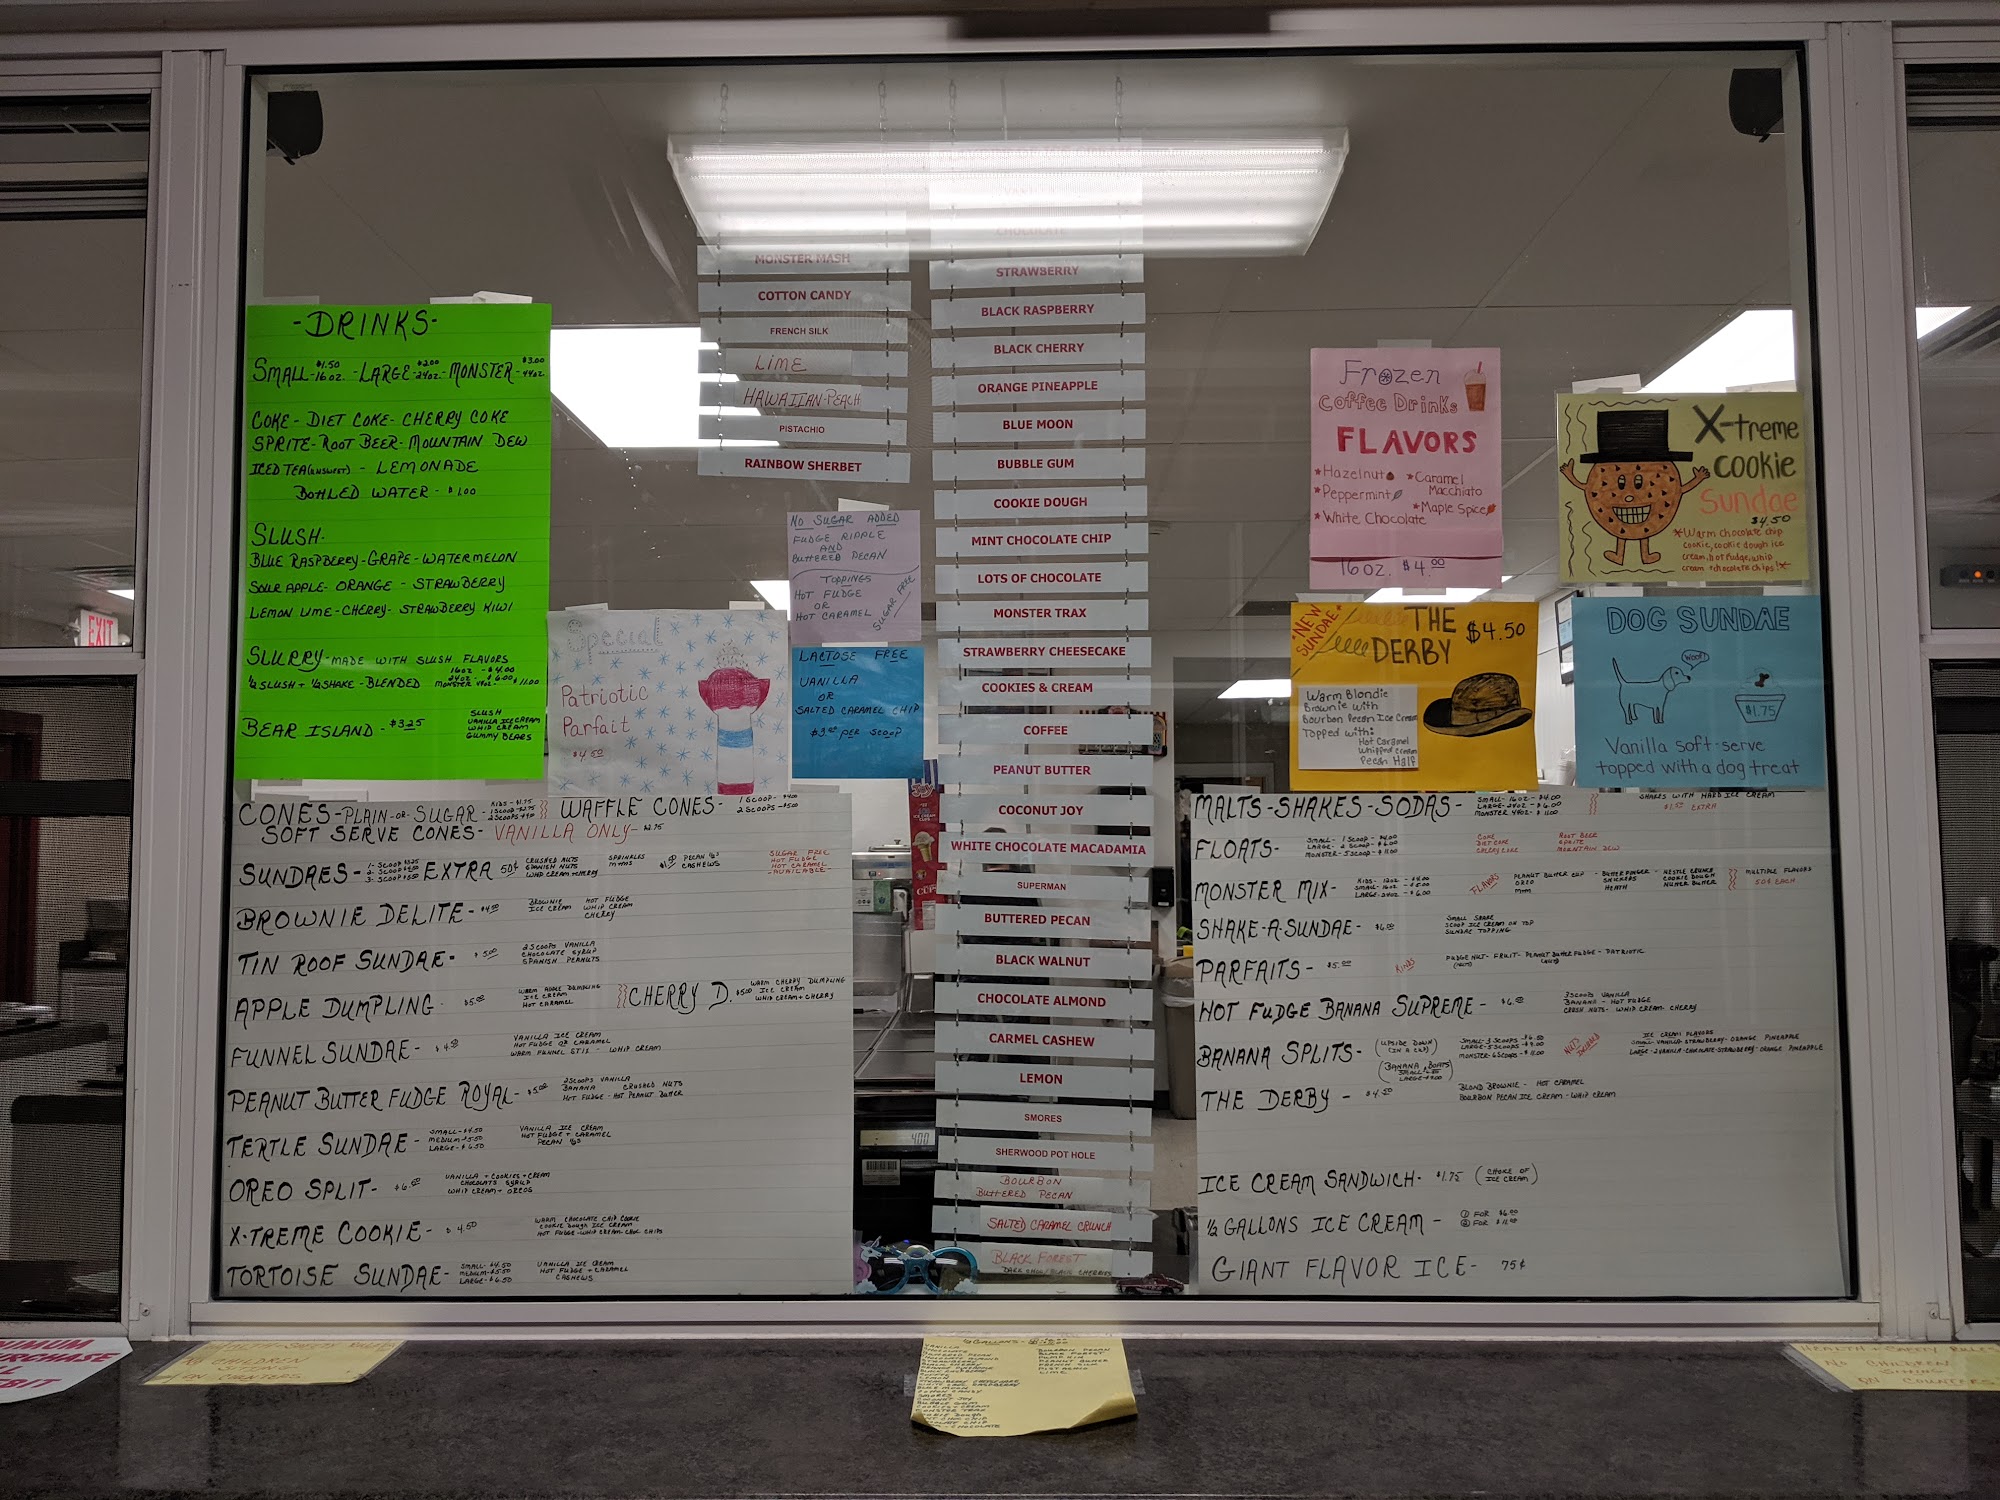 -DRINKS-
SMALL-$1.50 16oz. -LARGE-$2.00 24oz.-MONSTER-$3.00 44oz.
COKE- DIET COKE- CHERRY COKE
SPRITE-ROOT BEER-MOUNTAIN DEW
ICED TEA(UNSWEET) - LEMONADE
BOTTLED WATER - $1.00
SLUSH-
BLUE RASPBERRY-GRAPE-WATERMELON
SOUR APPLE- ORANGE - STRAWBERRY
LEMON LIME-CHERRY- STRAWBERRY KIWI
SLURRY-MADE WITH SLUSH FLAVORS
½ SLUSH + ½ SHAKE - BLENDED
16oz - $4.00
24oz - $6.00
MONSTER 44oz - $11.00
BEAR ISLAND - $3.25
SLUSH
VANILLA ICE CREAM
WHIP CREAM
GUMMY BEARS
EXIT
Special
Patriotic
Parfait
$4.50
MONSTER MASH
COTTON CANDY
FRENCH SILK
LIME
HAWAIIAN-PEACH
PISTACHIO
RAINBOW SHERBET
NO SUGAR ADDED
FUDGE RIPPLE
AND
BUTTERED PECAN
TOPPINGS
HOT FUDGE
OR
HOT CARAMEL
SUGAR FREE
LACTOSE FREE
VANILLA
OR
SALTED CARAMEL CHIP
$3.00 PER SCOOP
CHOCOLATE
STRAWBERRY
BLACK RASPBERRY
BLACK CHERRY
ORANGE PINEAPPLE
BLUE MOON
BUBBLE GUM
COOKIE DOUGH
MINT CHOCOLATE CHIP
LOTS OF CHOCOLATE
MONSTER TRAX
STRAWBERRY CHEESECAKE
COOKIES & CREAM
COFFEE
PEANUT BUTTER
COCONUT JOY
WHITE CHOCOLATE MACADAMIA
SUPERMAN
BUTTERED PECAN
BLACK WALNUT
CHOCOLATE ALMOND
CARMEL CASHEW
LEMON
SMORES
SHERWOOD POT HOLE
BOURBON
BUTTERED PECAN
SALTED CARAMEL CRUNCH
BLACK FOREST
DARK CHOC/BLACK CHERRIES
Frozen
Coffee Drinks
FLAVORS
*Hazelnut *Caramel Macchiato
*Peppermint *Maple Spice
*White Chocolate
16oz. $4.00
X-treme
cookie
Sundae
$4.50
*Warm chocolate chip
cookie, cookie dough ice
cream, hot fudge, whip
cream + chocolate chips!*
*NEW SUNDAE*
THE
DERBY
$4.50
Warm Blondie
Brownie with
Bourbon Pecan Ice Cream
Topped with:
Hot Caramel
Whipped Cream
Pecan Half
DOG SUNDAE
WOOF!
$1.75
Vanilla soft-serve
topped with a dog treat
CONES-PLAIN-OR-SUGAR-
KIDS-$1.75
1 SCOOP-$2.75
WAFFLE CONES-
1 SCOOP- $4.00
2 SCOOPS-$5.00
SOFT SERVE CONES- VANILLA ONLY-$2.75
SUNDAES-
EXTRA 50¢
CRUSHED NUTS
SPANISH NUTS
WHIP CREAM+CHERRY
SPRINKLES
M+MS
PECAN ½S
CASHEWS
SUGAR FREE
HOT FUDGE
HOT CARAMEL
-AVAILABLE-
BROWNIE DELITE-$4.50
BROWNIE HOT FUDGE
ICE CREAM WHIP CREAM
CHERRY
TIN ROOF SUNDAE- $5.00
2 SCOOPS VANILLA
CHOCOLATE SYRUP
SPANISH PEANUTS
APPLE DUMPLING- $5.00
WARM APPLE DUMPLING
ICE CREAM
HOT CARAMEL
CHERRY D. $5.00
WARM CHERRY DUMPLING
ICE CREAM
WHIP CREAM+CHERRY
FUNNEL SUNDAE-
VANILLA ICE CREAM
HOT FUDGE OR CARAMEL
WARM FUNNEL STIX - WHIP CREAM
PEANUT BUTTER FUDGE ROYAL-$5.00
2 SCOOPS VANILLA
BANANA CRUSHED NUTS
HOT FUDGE- HOT PEANUT BUTTER
TERTLE SUNDAE-
SMALL-$4.50
MEDIUM-$5.50
LARGE-$6.50
VANILLA ICE CREAM
HOT FUDGE + CARAMEL
PECAN ½S
OREO SPLIT- $6.00
VANILLA + COOKIES+CREAM
CHOCOLATE SYRUP
WHIP CREAM + OREOS
X-TREME COOKIE- $4.50
WARM CHOCOLATE CHIP COOKIE
COOKIE DOUGH ICE CREAM
HOT FUDGE-WHIP CREAM-CHOC CHIPS
TORTOISE SUNDAE-
SMALL-$4.50
MEDIUM-$5.50
LARGE-$6.50
VANILLA ICE CREAM
HOT FUDGE + CARAMEL
CASHEWS
4.00
MALTS-SHAKES-SODAS-
SMALL-16oz-$4.00
LARGE-24oz-$6.00
MONSTER-44oz-$11.00
SHAKES WITH HARD ICE CREAM
EXTRA
FLOATS-
SMALL- 1 SCOOP-$4.00
LARGE- 2 SCOOP-$6.00
MONSTER-5 SCOOP-$11.00
COKE ROOT BEER
DIET COKE SPRITE
CHERRY COKE MOUNTAIN DEW
MONSTER MIX-
KIDS-12oz-$4.00
SMALL-16oz-$5.00
LARGE-24oz-$6.00
FLAVORS
PEANUT BUTTER CUP - BUTTERFINGER - NESTLE CRUNCH
OREO SNICKERS COOKIE DOUGH
M+M HEATH NUTTER BUTTER
MULTIPLE FLAVORS
50¢ EACH
SHAKE-A-SUNDAE-$6.00
SMALL SHAKE
SCOOP ICE CREAM ON TOP
SUNDAE TOPPING
PARFAITS-$5.00
KINDS
FUDGE NUT- FRUIT- PEANUT BUTTER FUDGE - PATRIOTIC
HOT FUDGE BANANA SUPREME-$6.00
3 SCOOPS VANILLA
BANANA - HOT FUDGE
CRUSH NUTS- WHIP CREAM- CHERRY
BANANA SPLITS-
(UPSIDE DOWN)
(IN A CUP)
SMALL-3 SCOOPS-$6.50
LARGE-5 SCOOPS-$9.00
MONSTER-6 SCOOPS-$11.00
NUTS INCLUDED
ICE CREAM FLAVORS
SMALL-VANILLA-STRAWBERRY-ORANGE PINEAPPLE
LARGE-2 VANILLA-CHOCOLATE-STRAWBERRY-ORANGE PINEAPPLE
(BANANA BOATS
THE DERBY - $4.50
BLOND BROWNIE - HOT CARAMEL
BOURBON PECAN ICE CREAM - WHIP CREAM
ICE CREAM SANDWICH- $1.75 (CHOICE OF ICE CREAM)
½ GALLONS ICE CREAM -
① FOR $6.00
② FOR
GIANT FLAVOR ICE- 75¢
NO CHILDREN
SITTING
ON COUNTERS
VANILLA
BOURBON PECAN
BLACK FOREST
PUMPKIN
PEANUT BUTTER
FRENCH SILK
PISTACHIO
LIME
HEALTH + SAFETY RULES
NO CHILDREN
SITTING
ON COUNTERS